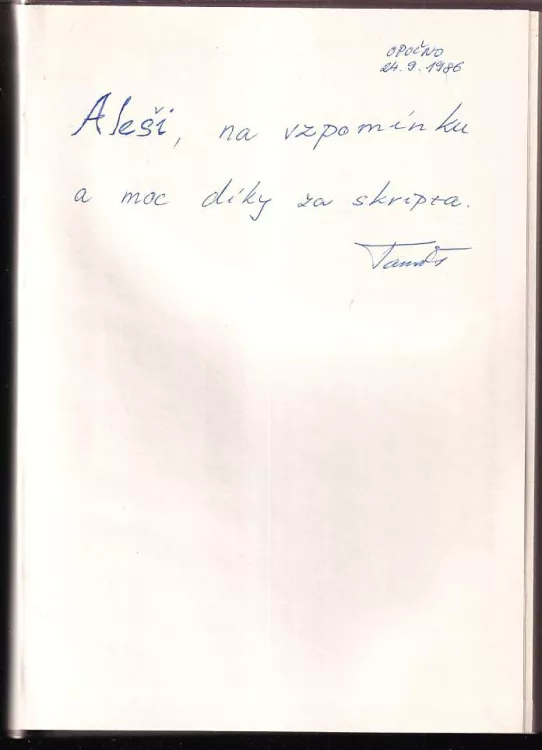 OPOČNO
24.9.1986
Aleši, na vzpomínku
a moc díky za skripta.